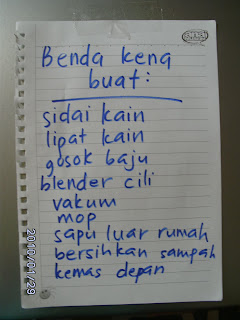 Benda keng
buat:
sidai kain
lipat kain
gosok baju
blender cili
vakum
mop
sapu luar rumah
bersihkan sampah
kemas depan
2010/01/29